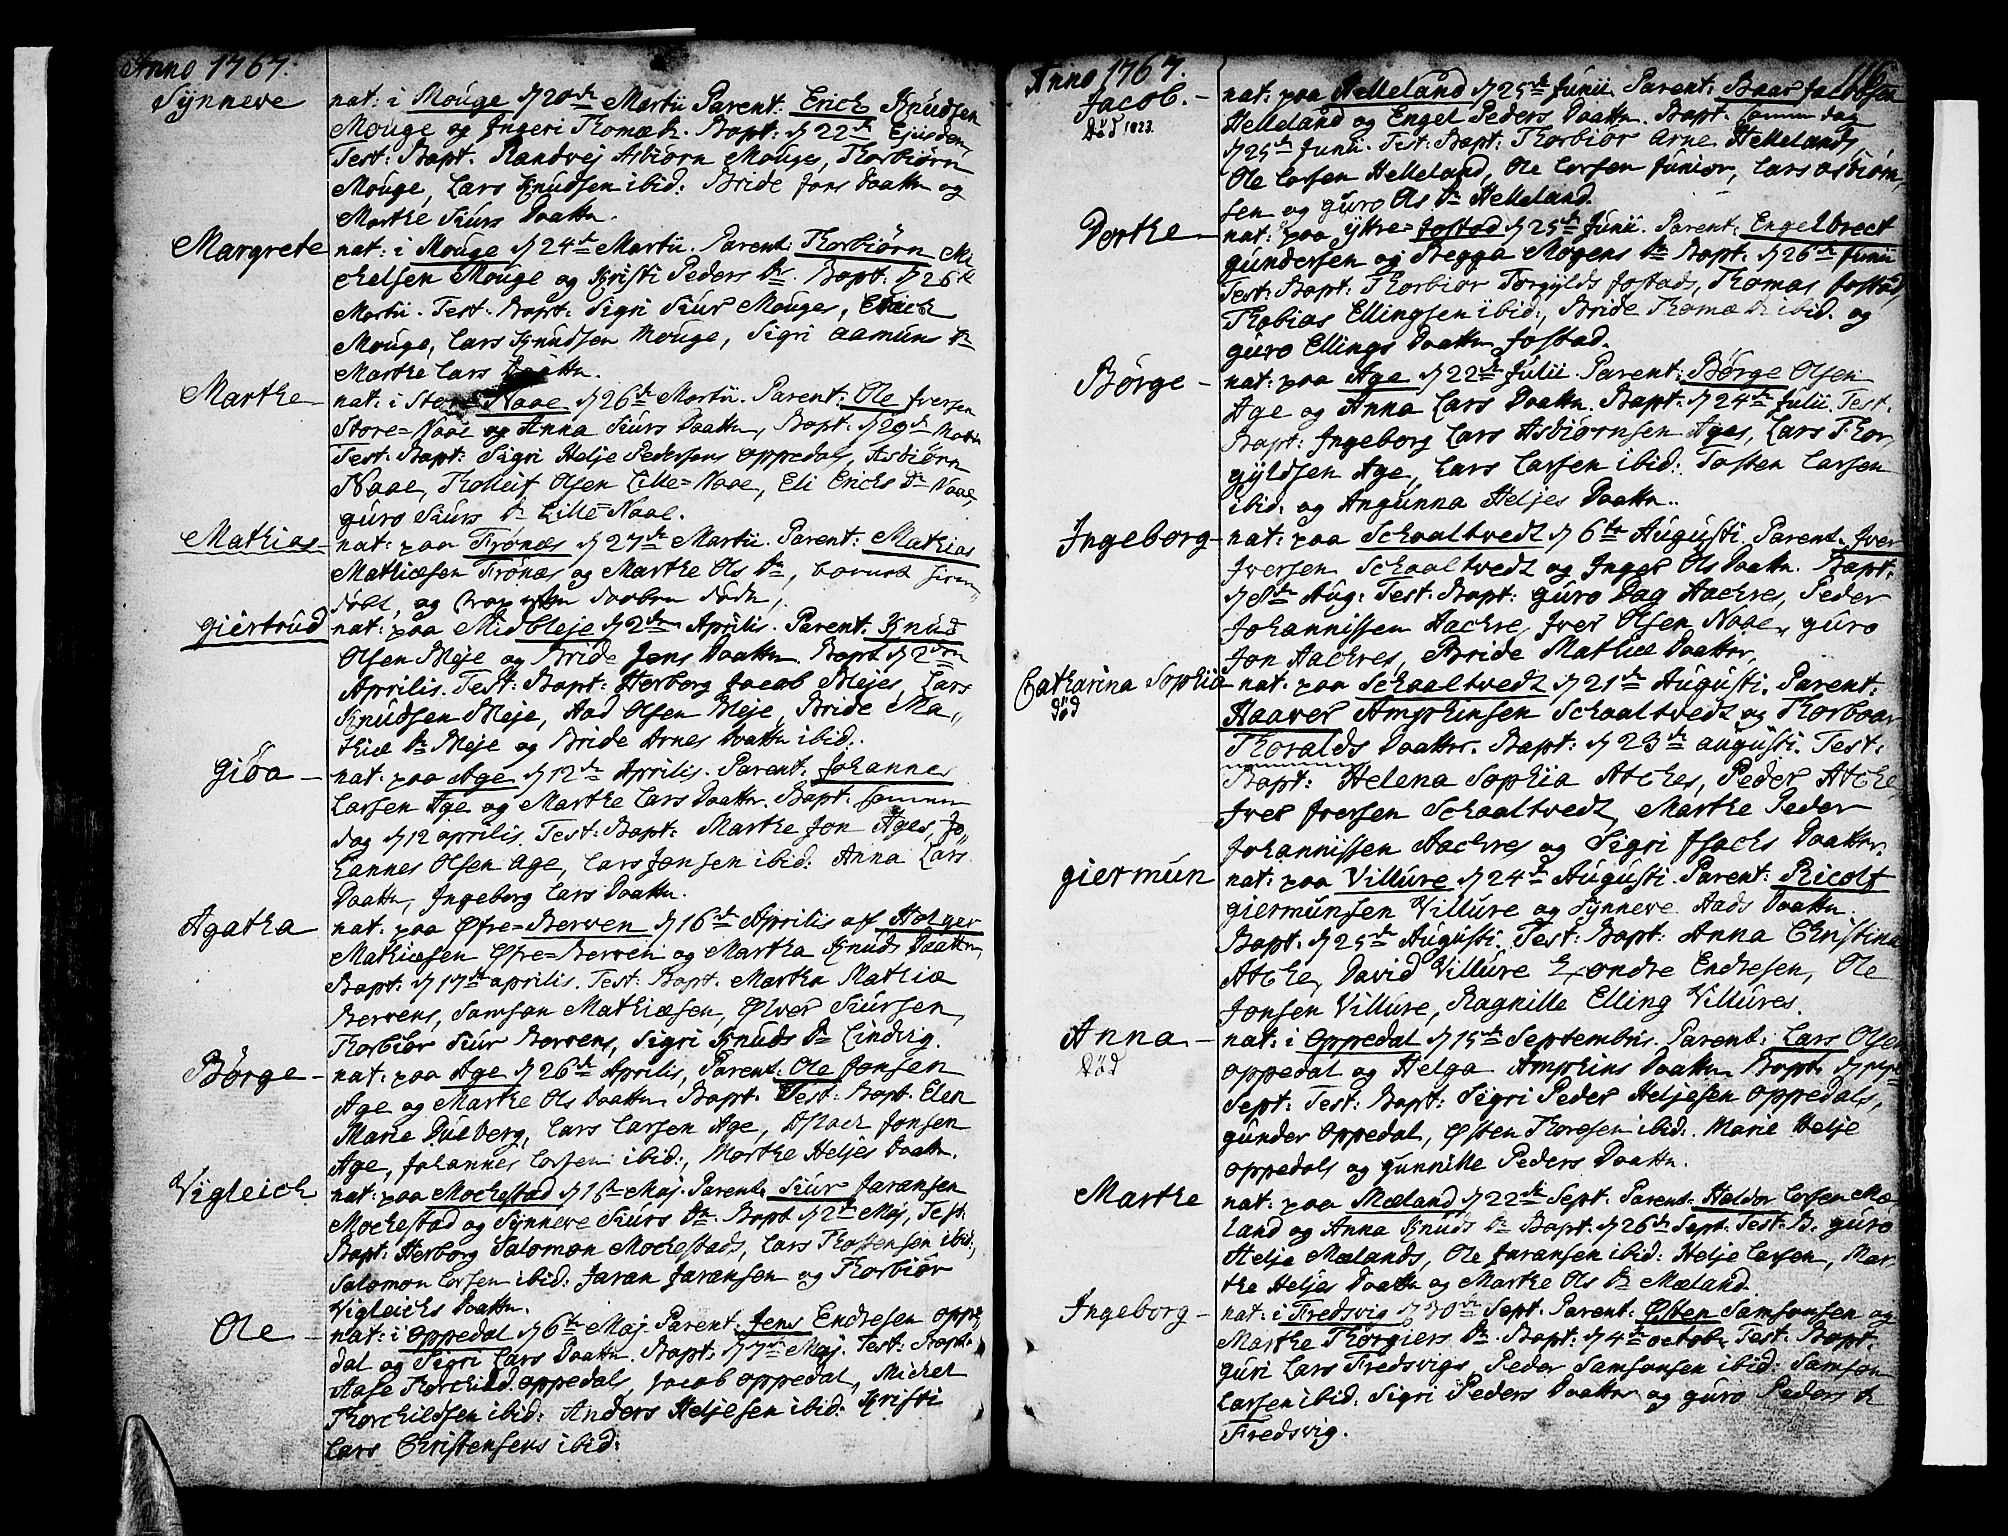 Anno 1767.
Synneve
nat: i Mouge d 20de Martii Parent: Erich Knudsen
Mouge og Ingeri Thomæ D. Bapt: d 22de Ejusdem,
Test: Bapt. Randvej Asbiørn Mouges, Thorbiørn
Mouge, Lars Knudsen ibid: Bride Jons Daatter og
Marthe Siurs Daatter.
Margrete
nat: i Mouge d 24de Martii. Parent: Thorbiørn Mi
chelsen Mouge og Kristi Peders Dr. Bapt: d 26de
Martii. Test. Bapt: Sigri Siur Mouges, Erich
Mouge, Lars Knudsen Mouge, Sigri Aamuns Dr
Marthe Lars Daatter.
Marthe
nat: i Store=Naae d 26de Martii. Parent: Ole Iversen
Store=Naae og Anna Siurs Daatter, Bapt: d 29de Martii
Test: Bapt: Sigri Helje Pedersens Oppedals, Asbiørn
Naae, Tholleif Olsen Lille=Naae, Eli Erichs Dr Naae,
guro Siurs Dr Lille=Naae.
Mathias
nat: paa Frønæs d 27de Martii. Parent: Mathias
Mathiæsen Frønæs og Marthe Ols Dr,
døbt, og daaben døde,
giertrud
nat: paa Midbleje d 2den Aprilis. Parent: Knud
Olsen Bleje og Bride Jons Daatter. Bapt d 2den
Aprilis. Test: Bapt: Herborg Jacob Blejes, Lars
Knudsen Bleje, Aad Olsen Bleje, Bride Ma,,
thiæ Dr Bleje og Bride Arnes Daatter ibid:
giøa
nat: paa Age d 12de Aprilis. Parent: Johannes
Larsen Age og Marthe Lars Daatter. Bapt: samme
dag d 12 aprilis. Test: Bapt: Marthe Jon Ages, Jo,,
hannes Olsen Age, Lars Jonsen ibid: Anna Lars
Daatter, Ingeborg Lars Daatter.
Agatha
nat: paa Øfre=Berven d 16de Aprilis af Holger
Mathiæsen Øfre=Berven og Martha Knuds Daatter,
Bapt: d 17de aprilis. Test: Bapt. Martha Mathiæ
Bervens, Samson Mathiæsen, Ølver Siursen,
Thorbiør Siur Bervens, Sigri Knuds Dr Lindvig.
Børge
nat: paa Age d 26de Aprilis, Parent: Ole Jonsen
Age og Marthe Ols Daatter Bapt: Test: Bapt. Elen
Marie Dulberg, Lars Larsen Age, Aslach Jonsen
Age, Johannes Larsen ibid:, Marthe Heljes Daatter.
Vigleich
nat: paa Mochestad d 1ste Maj. Parent: Siur Jaransen
Mochestad og Synneve Siurs Dr. Bapt d 2de Maj, Test:
Bapt: Herborg Salomon Mochestads, Lars Thostensen ibid:,
Salomon Larsen ibid: Jaran Jaransen og Thorbiør
Vigleichs Daatter.
Ole
nat: i Oppedal d 6te Maj. Parent: Jens Endresen Oppe,,
dal og Sigri Lars Daatter. Bapt: d 7de Maj. Test: Bapt:
Aase Thorchild Oppedals, Jacob Oppedal, Michel
Thorchildsen ibid: Anders Heljesen ibid: Kristi
Lars Christensens ibid:
Anno 1767.
116
Jacob.
Død 1823.
nat: paa Helleland d 25de Junii. Parent: Baar Jacobsen
Helleland og Engel Peders Daatter. Bapt. samme dag
d 25de Junii. Test: Bapt: Thorbiør Arne Hellelands,
Ole Larsen Helleland, Ole Larsen Junior, Lars Asbiørn,,
sen og guro Ols Dr Helleland.
Dorthe
nat: paa ytre=Jostad d 25de Junii. Parent: Engelbrect
gundersen og Begga Mogens Dr Bapt: d 26de Junii
Test: Bapt: Thorbiør Torgylds Jostads, Thomas Jostad,
Thobias Ellingsen ibid:, Bride Thomæ D ibid: og
guro Ellings Daatter Jostad.
Børge
nat: paa Age d 22de Julii. Parent: Børge Olsen
Age og Anna Lars Daatter. Bapt: d 24de Julii. Test.
Bapt: Ingeborg Lars Asbiørnsen Ages, Lars Thor,,
gyldsen Age, Lars Larsen ibid: Tosten Larsen
ibid: og Angunna Heljes Daatter.
Ingeborg
nat: paa Schaaltvedt d 6te Augusti. Parent. Iver
Iversen Schaaltvedt og Inger Ols Daatter. Bapt:
d 8de Aug: Test: Bapt: guro Dag Aachres, Peder
Johannissen Aachre, Iver Olsen Naae, guro
Jon Aachres, Bride Mathiæ Daatter.
Catharina Sophia
død
nat: paa Schaaltvedt d 21de Augusti. Parent:
Haaver Amphinsen Schaaltvedt og Thorboar
Thoralds Daatter. Bapt: d 23de augusti. Test:
Bapt: Helena Sophia Atches, Peder Atche
Iver Iversen Schaaltvedt, Marthe Peder
Johannissen Aachres og Sigri Isachs Daatter.
giermun
nat: paa Villure d 24de Augusti. Parent: Ricolf
giermunsen Villure og Synneve Aads Daatter.
Bapt. d 25de Augusti. Test: Bapt: Anna Christina
Atche, David Villure, Endre Endresen, Ole
Jonsen Villure, Ragnille Elling Villures.
Anna
Død
nat: i Oppedal d 15de Septembris. Parent: Lars Olsen
Oppedal og Helga Amphins Daatter Bapt.
Sept: Test: Bapt: Sigri Peder Heljesen Oppedals,
gunder Oppedal, Østen Thoresen ibid. Marie Helje
Oppedals og gunnille Peders Daatter.
Marthe
nat: paa Mæland d 22de Sept. Parent: Haldor Larsen Mæ,,
land og Anna Knuds Dr Bapt: d 26de Sept. Test: B. guro
Helje Mælands, Ole Jaransen ibid: Helje Larsen, Mar,,
the Heljes Daatter og Marthe Ols Dr Mæland.
Ingeborg
nat: i Fredsvig d 30de Sept. Parent: Østen Samsonsen og
Marthe Thorgiers Dr. Bapt: d 4de octobr. Test: Bapt.
guri Lars Fredsvigs, Peder Samsonsen ibid: Samson
Larsen ibid: Sigri Peders Daatter og guro Peders D
Fredsvig.